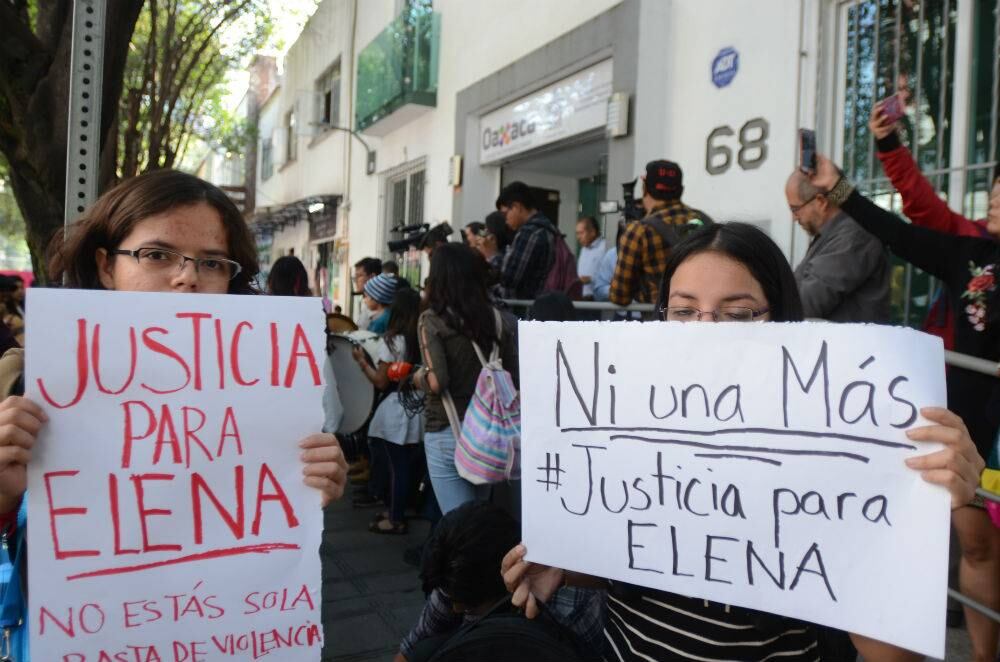 JUSTICIA
PARA
ELENA
NO ESTÁS SOLA
BASTA DE VIOLENCIA
Ni una Más
#Justicia para
ELENA
Oaxaca
68
ADT